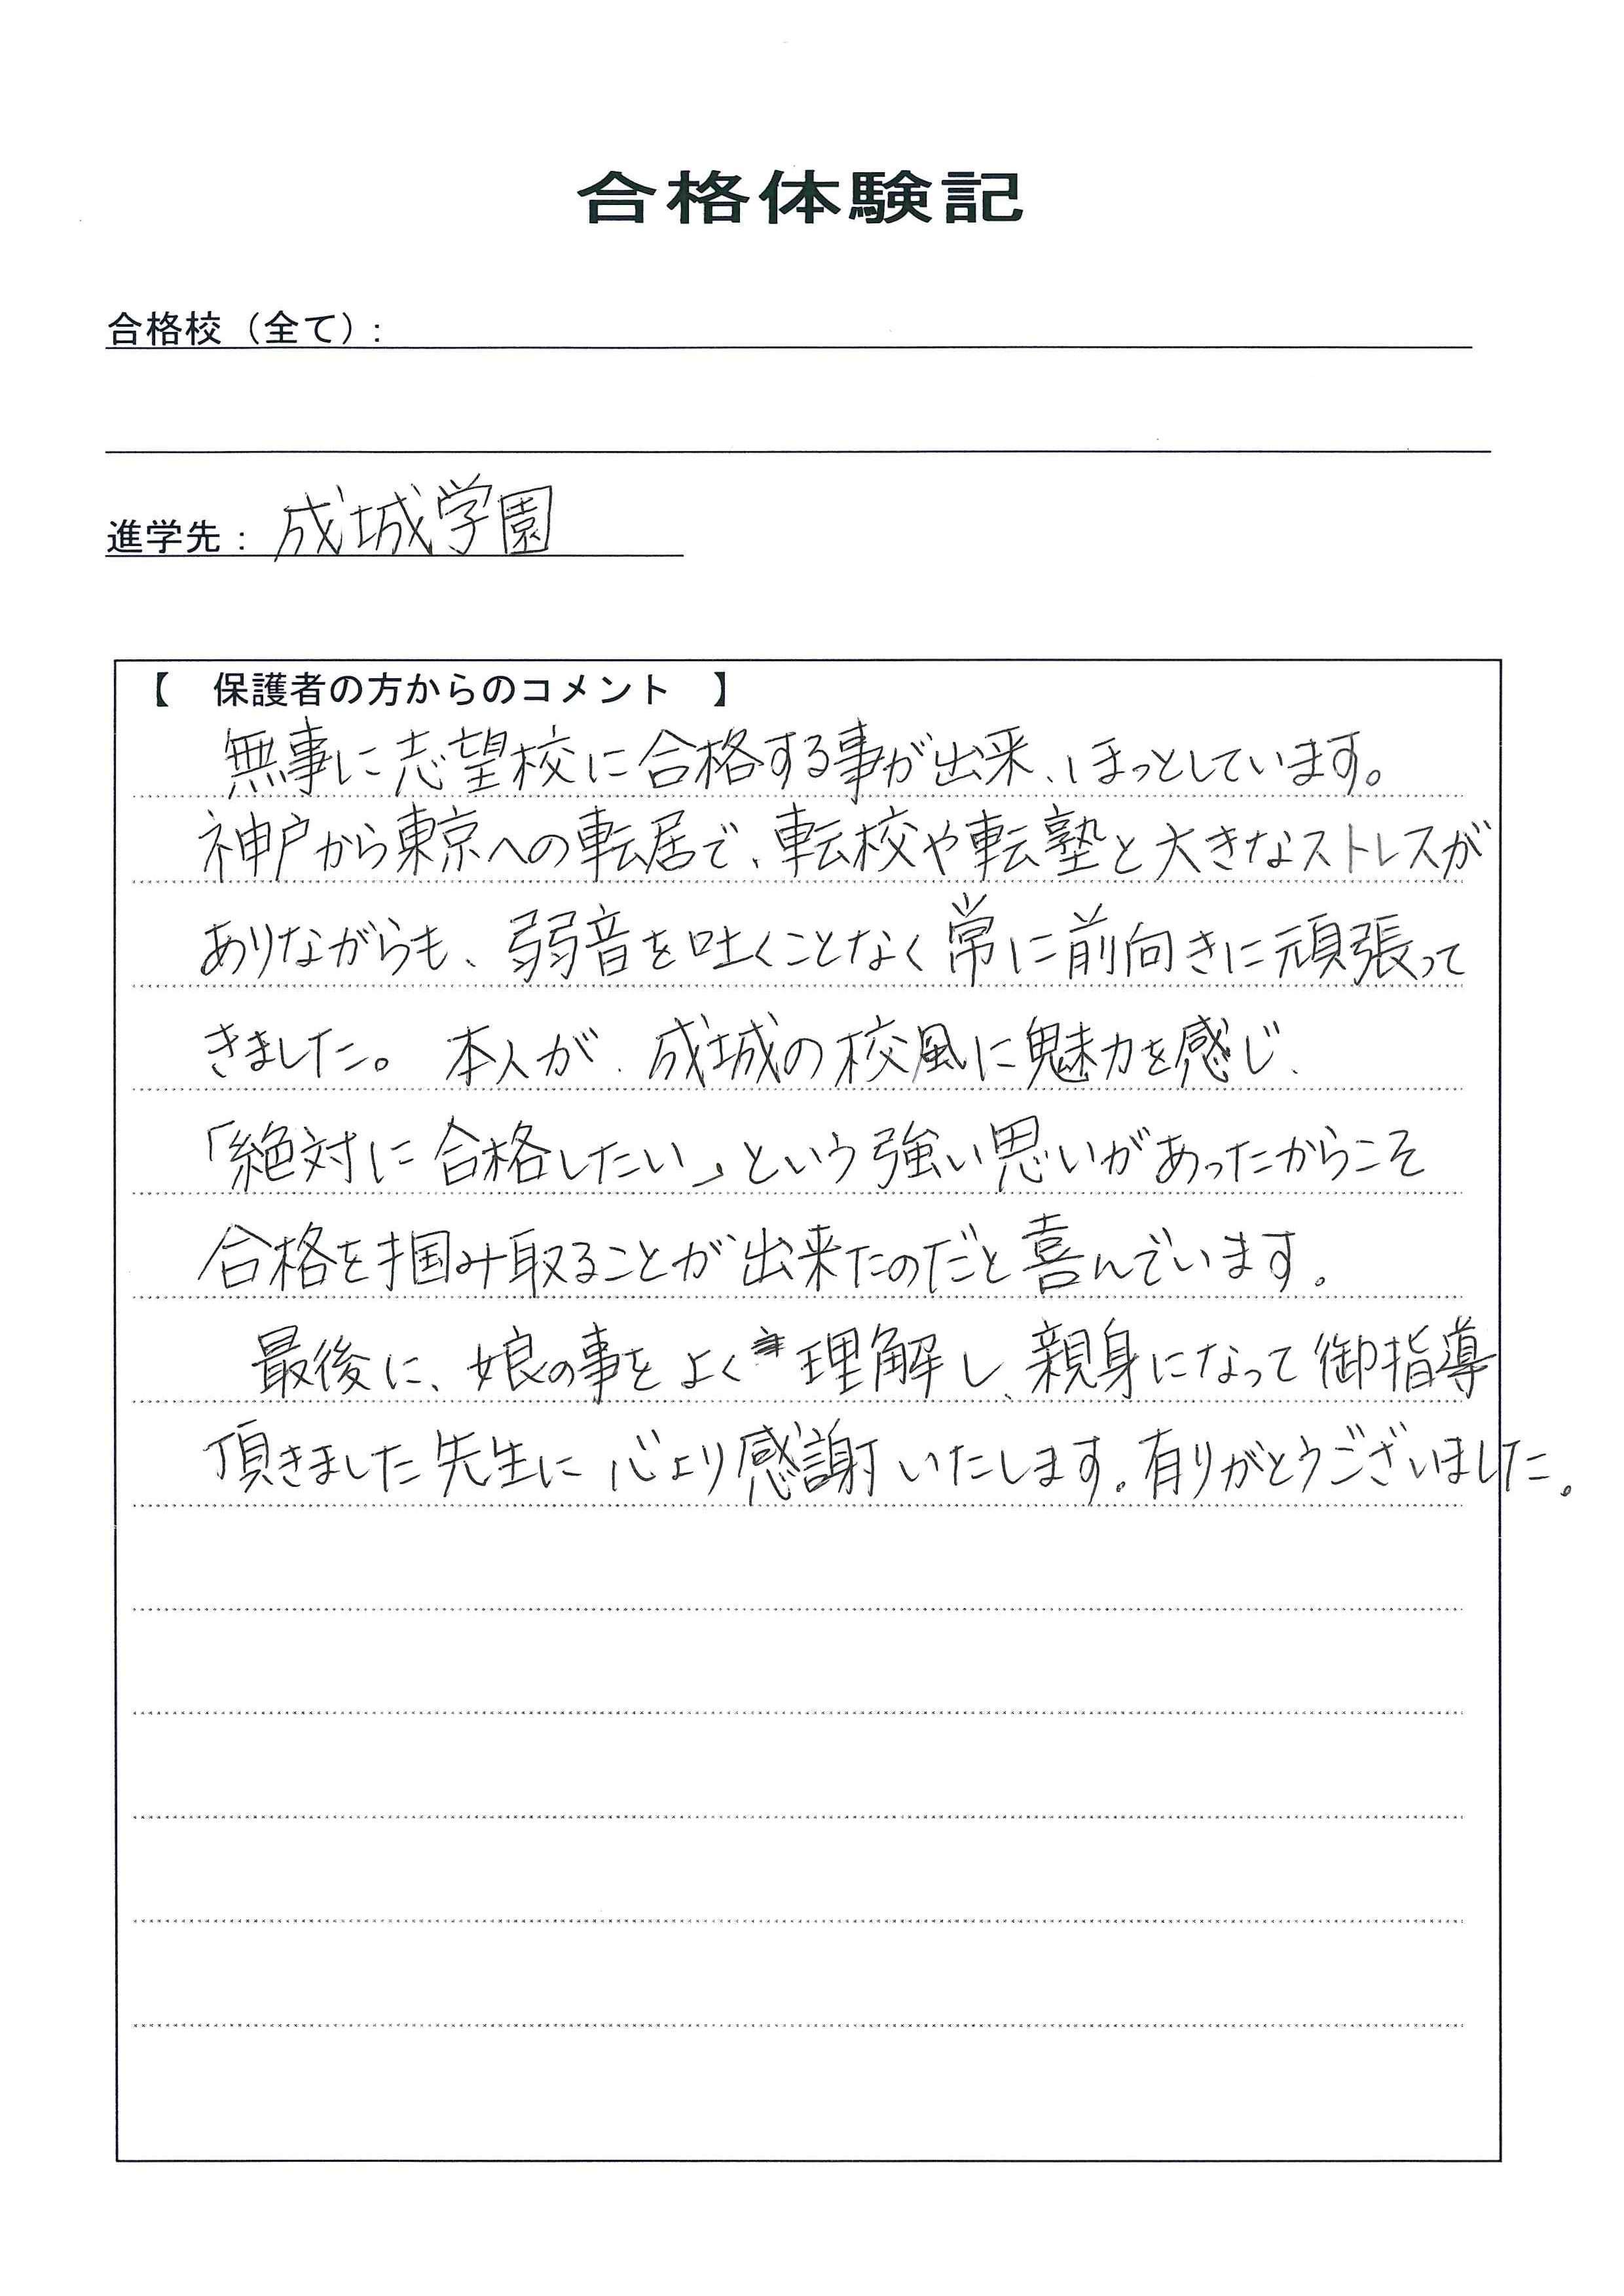 合格体験記
合格校（全て）:
進学先： 成城学園
【　保護者の方からのコメント　】
無事に志望校に合格する事が出来、ほっとしています。
神戸から東京への転居で、転校や転塾と大きなストレスが
ありながらも、弱音を吐くことなく常に前向きに頑張って
きました。 本人が、成城の校風に魅力を感じ、
「絶対に合格したい」という強い思いがあったからこそ
合格を掴み取ることが出来たのだと喜んでいます。
最後に、娘の事をよく理解し、親身になって御指導
頂きました先生に心より感謝いたします。有りがとうございました。